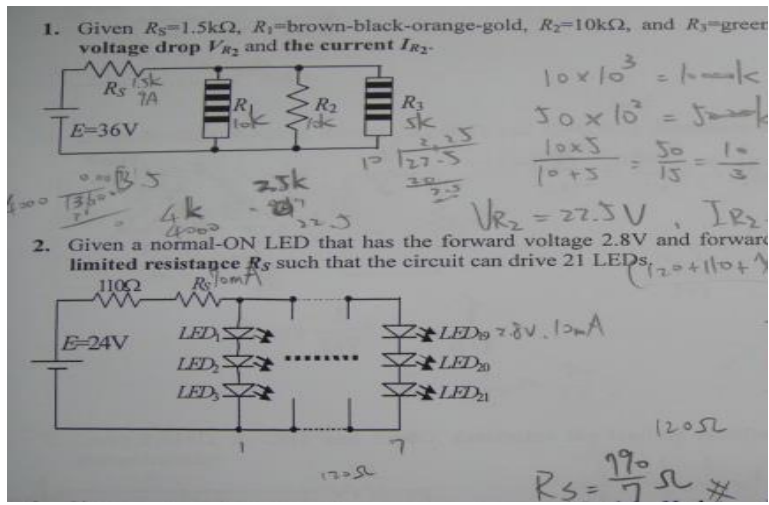 1. Given RS=1.5kΩ, R1=brown-black-orange-gold, R2=10kΩ, and R3=green
voltage drop VR2 and the current IR2.
10×10³ =
50×10² =
RS 1.5k
9A
R1 10k
R2 10k
R3 5k
E=36V
10×5 / 10+5 = 50/15 = 10/3
2.25
10 22.5
20
2.5
4k
4000
2.5k
22.5
VR2 = 22.5V , IR2
2. Given a normal-ON LED that has the forward voltage 2.8V and forward
limited resistance RS such that the circuit can drive 21 LEDs.
110Ω RS 70mA
(120+110+
E=24V
LED1 LED19 2.8V, 10mA
LED2 LED20
LED3 LED21
1 7
120Ω
120Ω
RS = 190/7 Ω